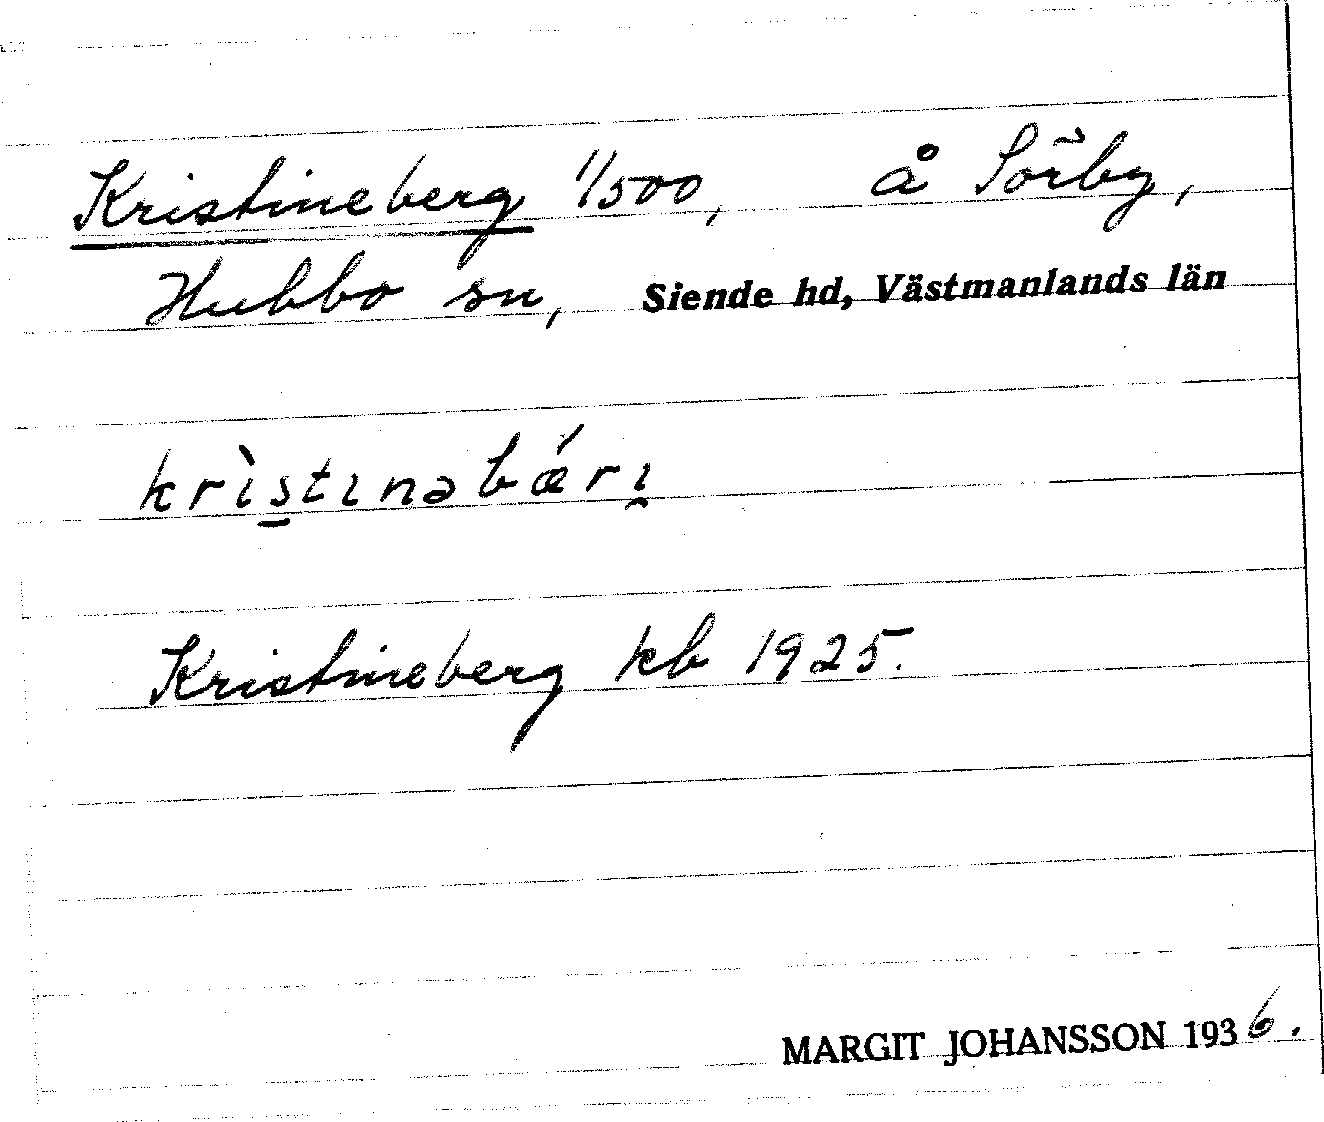 Kristineberg 1/500, å Sörby,
Hubbo sn, Siende hd, Västmanlands län
krìs̠tɩnəbǽrɩ̯
Kristineberg kb 1925.
MARGIT JOHANSSON 1936.